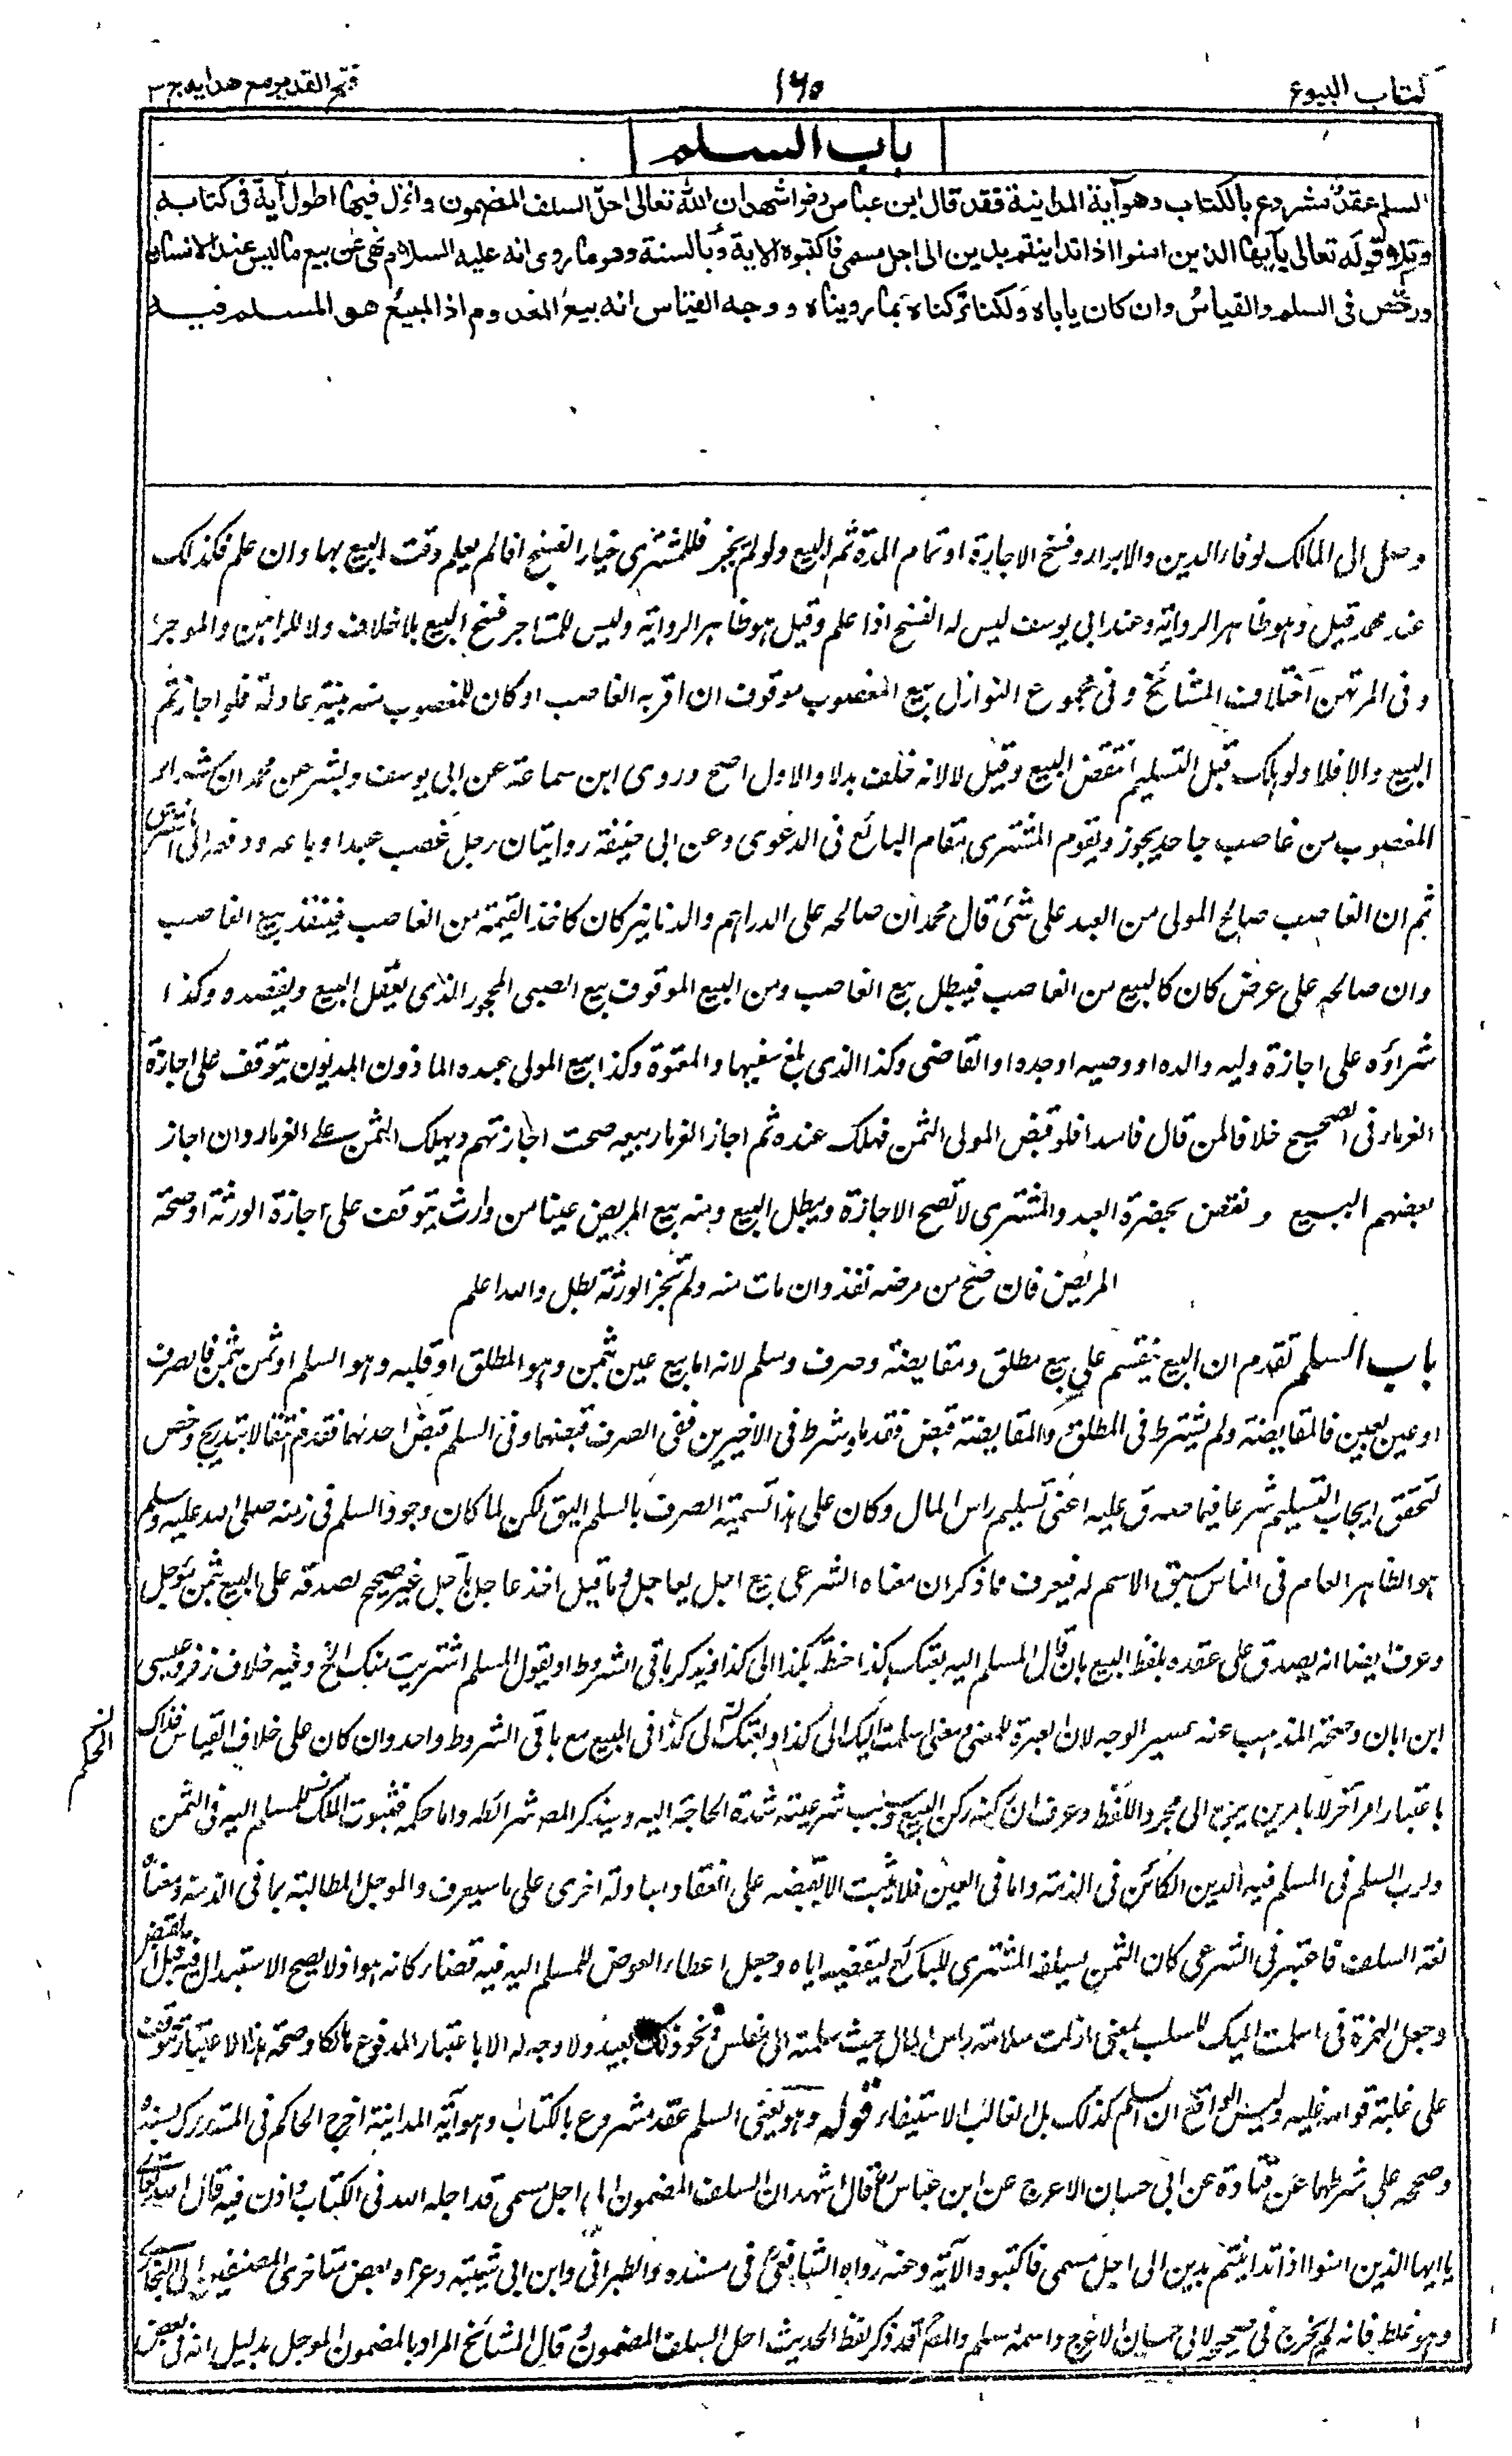 كتاب البيوع
١٦٥
فتح القدير مع هدايه ج ٣
باب السلم
السلم عقد مشروع بالكتاب وهو آية المداينة فقد قال ابن عباس رض اشهد ان الله تعالى احل السلف المضمون وانزل فيها اطول آية فى كتابه
وتلا قوله تعالى يآايها الذين امنوا اذا تداينتم بدين الى اجل مسمى فاكتبوه الاية وبالسنة وهو ما روى انه عليه السلام نهى عن بيع ما ليس عند الانسان
ورخص فى السلم والقياس وان كان ياباه ولكنا تركناه بما رويناه ووجه القياس انه بيع المعدوم اذ المبيع هو المسلم فيه
وصل الى المالك لوفاء الدين والابراء وفسخ الاجارة او تمام المدة ثم البيع ولو لم يجز فللمشترى خيار الفسخ اذا لم يعلم وقت البيع بها وان علم فكذلك
عند محمد قيل وهو ظاهر الرواية وعند ابى يوسف ليس له الفسخ اذا علم وقيل هو ظاهر الرواية وليس للمستاجر فسخ البيع بلا خلاف ولا للراهن والموجر
وفى المرتهن اختلاف المشائخ وفى مجموع النوازل بيع المغصوب موقوف ان اقر به الغاصب او كان للمغصوب منه بينة عادلة فلو اجاز تم
البيع والا فلا ولو هلك قبل التسليم انتقض البيع وقيل لا لانه خلف بدلا والاول اصح وروى ابن سماعة عن ابى يوسف وبشر عن محمد ان شراء
المغصوب من غاصب جاحد يجوز ويقوم المشترى مقام البائع فى الدعوى وعن ابى حنيفة روايتان رجل غصب عبدا وباعه ودفعه الى المشترى
ثم ان الغاصب صالح المولى من العبد على شئ قال محمد ان صالحه على الدراهم والدنانير كان كاخذ القيمة من الغاصب فينفذ بيع الغاصب
وان صالحه على عرض كان كالبيع من الغاصب فيبطل بيع الغاصب ومن البيع الموقوف بيع الصبى المحجور الذى يعقل البيع ويقصده وكذا
شراؤه على اجازة وليه والده او وصيه او جده او القاضى وكذا الذى بلغ سفيها والمعتوه وكذا بيع المولى عبده الماذون المديون يتوقف على اجازة
الغرماء فى الصحيح خلافا لمن قال فاسد فلو قبض المولى الثمن فهلك عنده ثم اجاز الغرماء بيعه صحت اجازتهم ويهلك الثمن على الغرماء وان اجاز
بعضهم البيع ونقض بحضرة العبد والمشترى لا تصح الاجازة ويبطل البيع ومنه بيع المريض عينا من وارث يتوقف على اجازة الورثة او صحة
المريض فان صح من مرضه نفذ وان مات منه ولم تجز الورثة بطل والله اعلم
باب السلم تقدم ان البيع ينقسم على بيع مطلق ومقايضة وصرف وسلم لانه اما بيع عين بثمن وهو المطلق او قلبه وهو السلم او ثمن بثمن فالصرف
او عين بعين فالمقايضة ولم يشترط فى المطلق والمقايضة قبض فقدما وشرط فى الاخيرين ففى الصرف قبضهما وفى السلم قبض احدهما فقدم انتقالا بتدريج وخص
لتحقق ايجاب التسليم شرعا فيما صدق عليه اعنى تسليم راس المال وكان على هذا تسمية الصرف بالسلم اليق لكن لما كان وجود السلم فى زمنه صلى الله عليه وسلم
هو الظاهر العام فى الناس سبق الاسم له فيعرف مما ذكر ان معناه الشرعى بيع اجل بعاجل وما قيل اخذ عاجل بآجل غير صحيح لصدقه على البيع بثمن مؤجل
وعرف ايضا انه يصدق على عقده بلفظ البيع بان قال المسلم اليه بعتك كذا حنطة بكذا الى كذا ويذكر باقى الشروط او يقول المسلم اشتريت منك الخ وفيه خلاف زفر وعيسى
ابن ابان وصحة المذهب عنه عسير الوجه لان العبرة للمعنى ومعنى اسلمت اليك الى كذا وبعتك الى كذا فى البيع مع باقى الشروط واحد وان كان على خلاف القياس فذاك
باعتبار امر آخر لا بامرين يرجع الى مجرد اللفظ وعرف ان ركنه ركن البيع وسبب شرعيته شدة الحاجة اليه وسيذكر المص شرائطه واما حكمه فثبوت الملك للمسلم اليه فى الثمن
ولرب السلم فى المسلم فيه الدين الكائن فى الذمة واما فى العين فلا يثبت الا بقبضه على انعقاد مبادلة اخرى على ما سيعرف والمؤجل المطالبة بما فى الذمة ومعناه
لغة السلف فاعتبر فى الشرعى كان الثمن يسلفه المشترى للبائع ليقضيه اياه وجعل اعطاء العوض للمسلم اليه فيه قضاء كانه هو اذ لا يصح الاستبدال فيه قبل القبض
وجعل الهمزة فى اسلمت اليك للسلب بمعنى ازلت سلامة راس المال حيث سلمته الى مفلس ونحو ذلك بعيد ولا وجه له الا باعتبار المدفوع هالكا وصحة هذا الاعتبار تتوقف
على غلبة توائه عليه وليس الواقع ان السلم كذلك بل الغالب الاستيفاء قوله وهو يعنى السلم عقد مشروع بالكتاب وهو آية المداينة اخرج الحاكم فى المستدرك بسنده
وصححه على شرطهما عن قتادة عن ابى حسان الاعرج عن ابن عباس رض قال اشهد ان السلف المضمون الى اجل مسمى قد احله الله فى الكتاب واذن فيه قال الله تعالى
يا ايها الذين امنوا اذا تداينتم بدين الى اجل مسمى فاكتبوه الآية وعنه رواه الشافعى فى مسنده والطبرانى وابن ابى شيبة وعزاه بعض متاخرى المصنفين الى البخارى
وهو غلط فانه لم يخرج فى صحيحه لابى حسان الاعرج واسمه مسلم والمص قد ذكر لفظ الحديث احل السلف المضمون قال المشائخ المراد بالمضمون المؤجل بدليل انه فى بعض